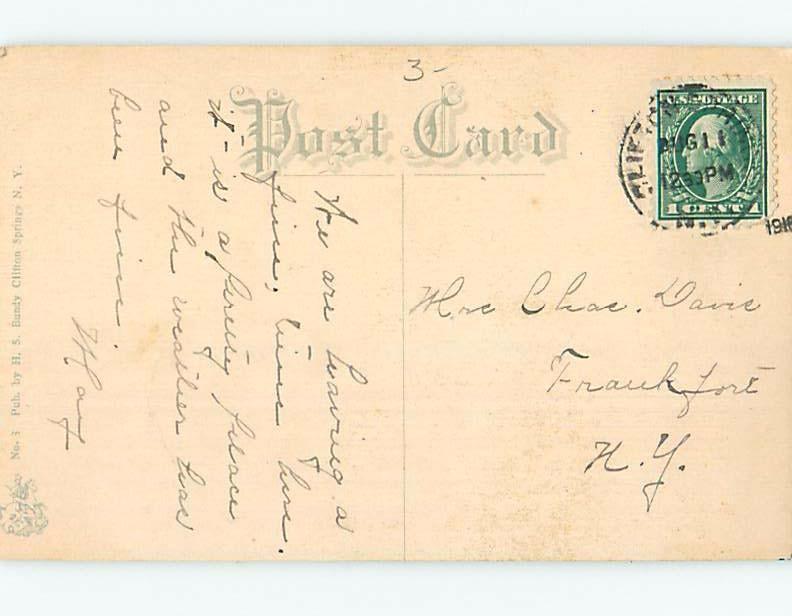 3-
Post Card
U.S. POSTAGE
CLIFTON
AUG 11
12 30 PM
1 CENT 1
N.Y.
1916
We are having a
fine time here.
it is a pretty place
and the weather has
been fine.
May
Mrs Chas. Davis
Frankfort
N.Y.
No. 3 Pub. by H. S. Bundy Clifton Springs N. Y.